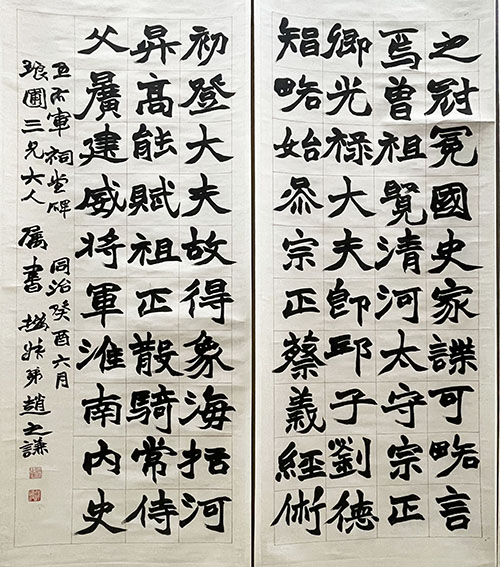 之冠冕國史家諜可略言
焉曾祖覽清河太守宗正
卿光祿大夫卽邱子劉德
智略始叅宗正蔡義經術
初登大夫故得象海括河
昇高能賦祖正散騎常侍
父曠建威將軍淮南內史
王右軍祠堂碑 同治癸酉六月
琅圃三兄大人屬書 撝叔弟趙之謙